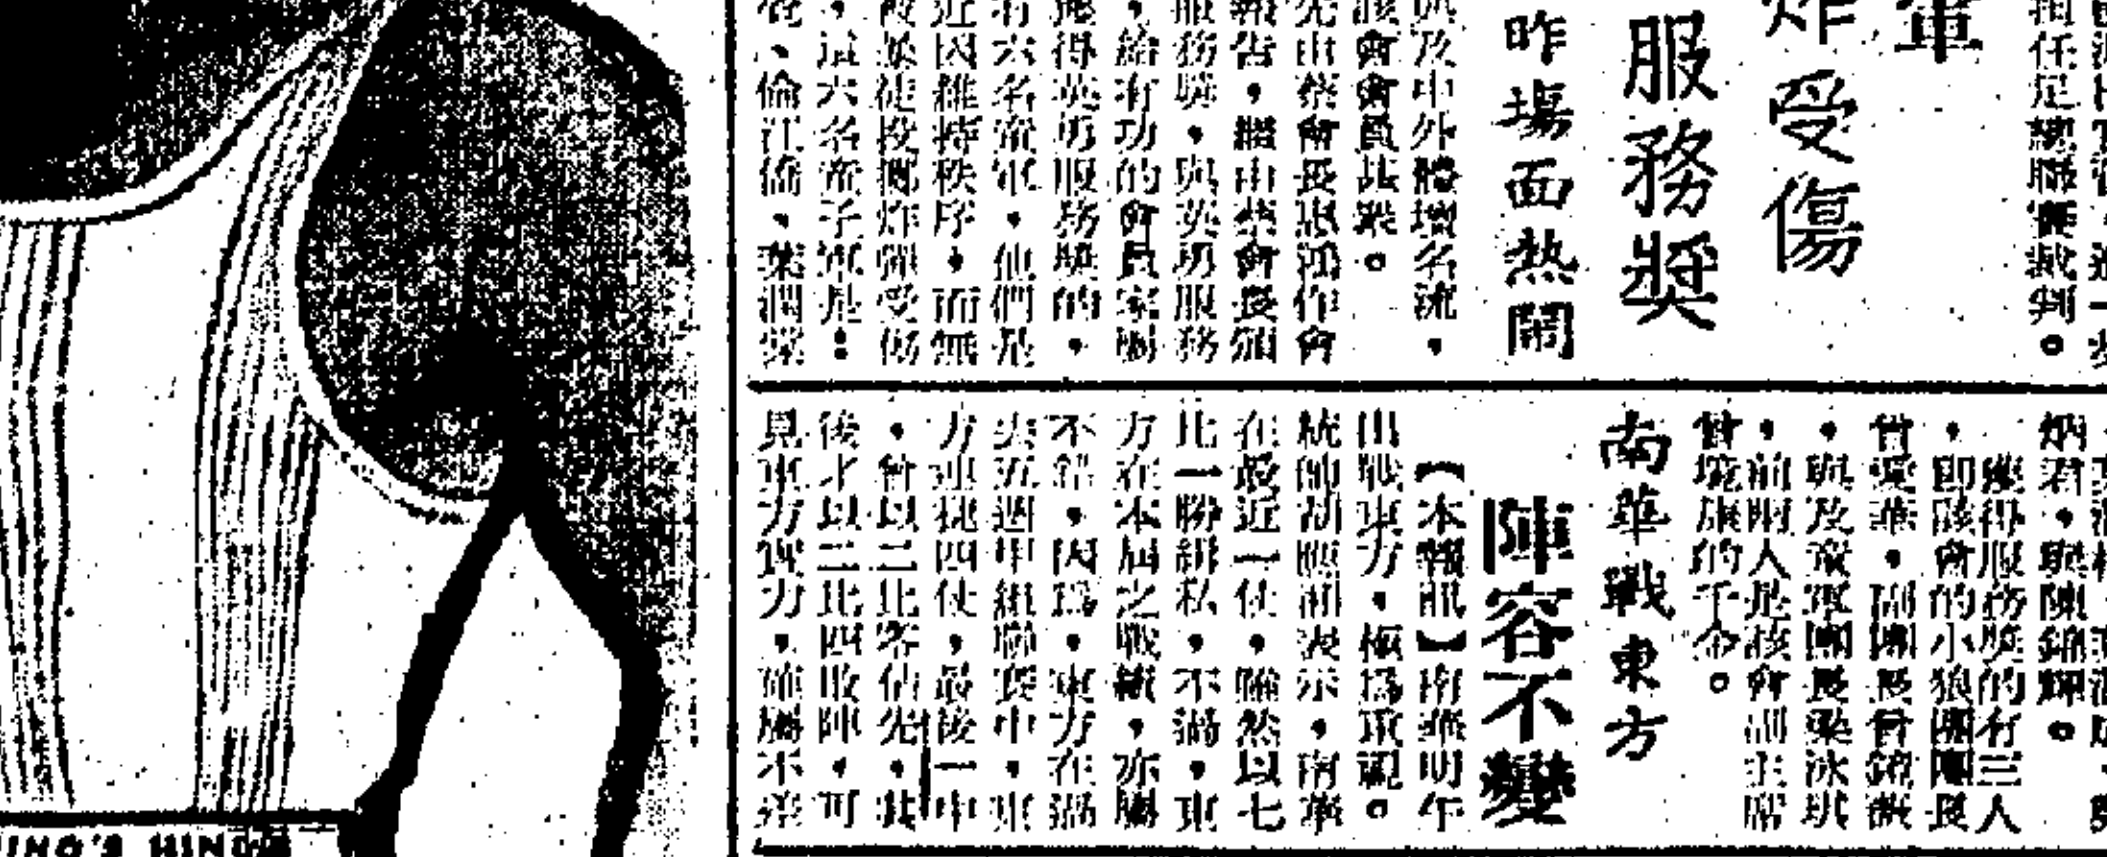 軍
炸受傷
服務獎
昨場面熱鬧
與及中外體壇名流，
該會會員甚眾。
先由蔡會長惠鴻作會
報告，繼由蔡會長頒
服務獎，與英勇服務
，給有功的會員
得英勇服務獎的，
有六名童軍，他們是
近因維持秩序，而無
被暴徒投擲炸彈受傷
，這六名童子軍是：
、倫江僑、葉潤
担任足總職業裁判。
炳君，與陳錦輝。
獲得服務獎的有三人
，即該會的小狼團團長
曾愛華，副團長曾銘
，與及童軍團長梁冰琪
，前兩人是該會副主席
曾境康的千金。
南華戰東方
陣容不變
【本報訊】南華明午
出戰東方，極為重視。
統帥胡應湘表示，南華
在最近一仗，雖然以七
比一勝緝私，不過，東
方在本屆之戰績，亦屬
不錯，因為，東方在過
去五週甲組聯賽中，東
方連捷四仗，最後一中
，曾以二比零佔先，其
後才以二比四敗陣，可
見東方實力，確屬不差